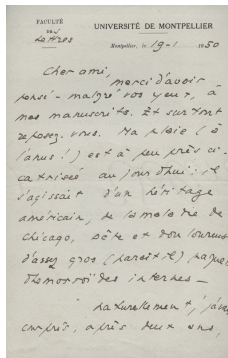 FACULTÉ
DES
Lettres
UNIVERSITÉ DE MONTPELLIER
Montpellier, le 19-1 1950
Cher ami,
merci d'avoir
pensé - malgré vos yeux, à
mes manuscrits. Et surtout
reposez-vous. Ma plaie (à
l'anus!) est à peu près ci-
catrisée aujourd'hui : il
s'agissait d'un héritage
américain, de la maladie de
Chicago,
d'assez gros (paraît-il) paquet
d'hémorroïdes internes -
naturellement, j'avais
après deux ans,